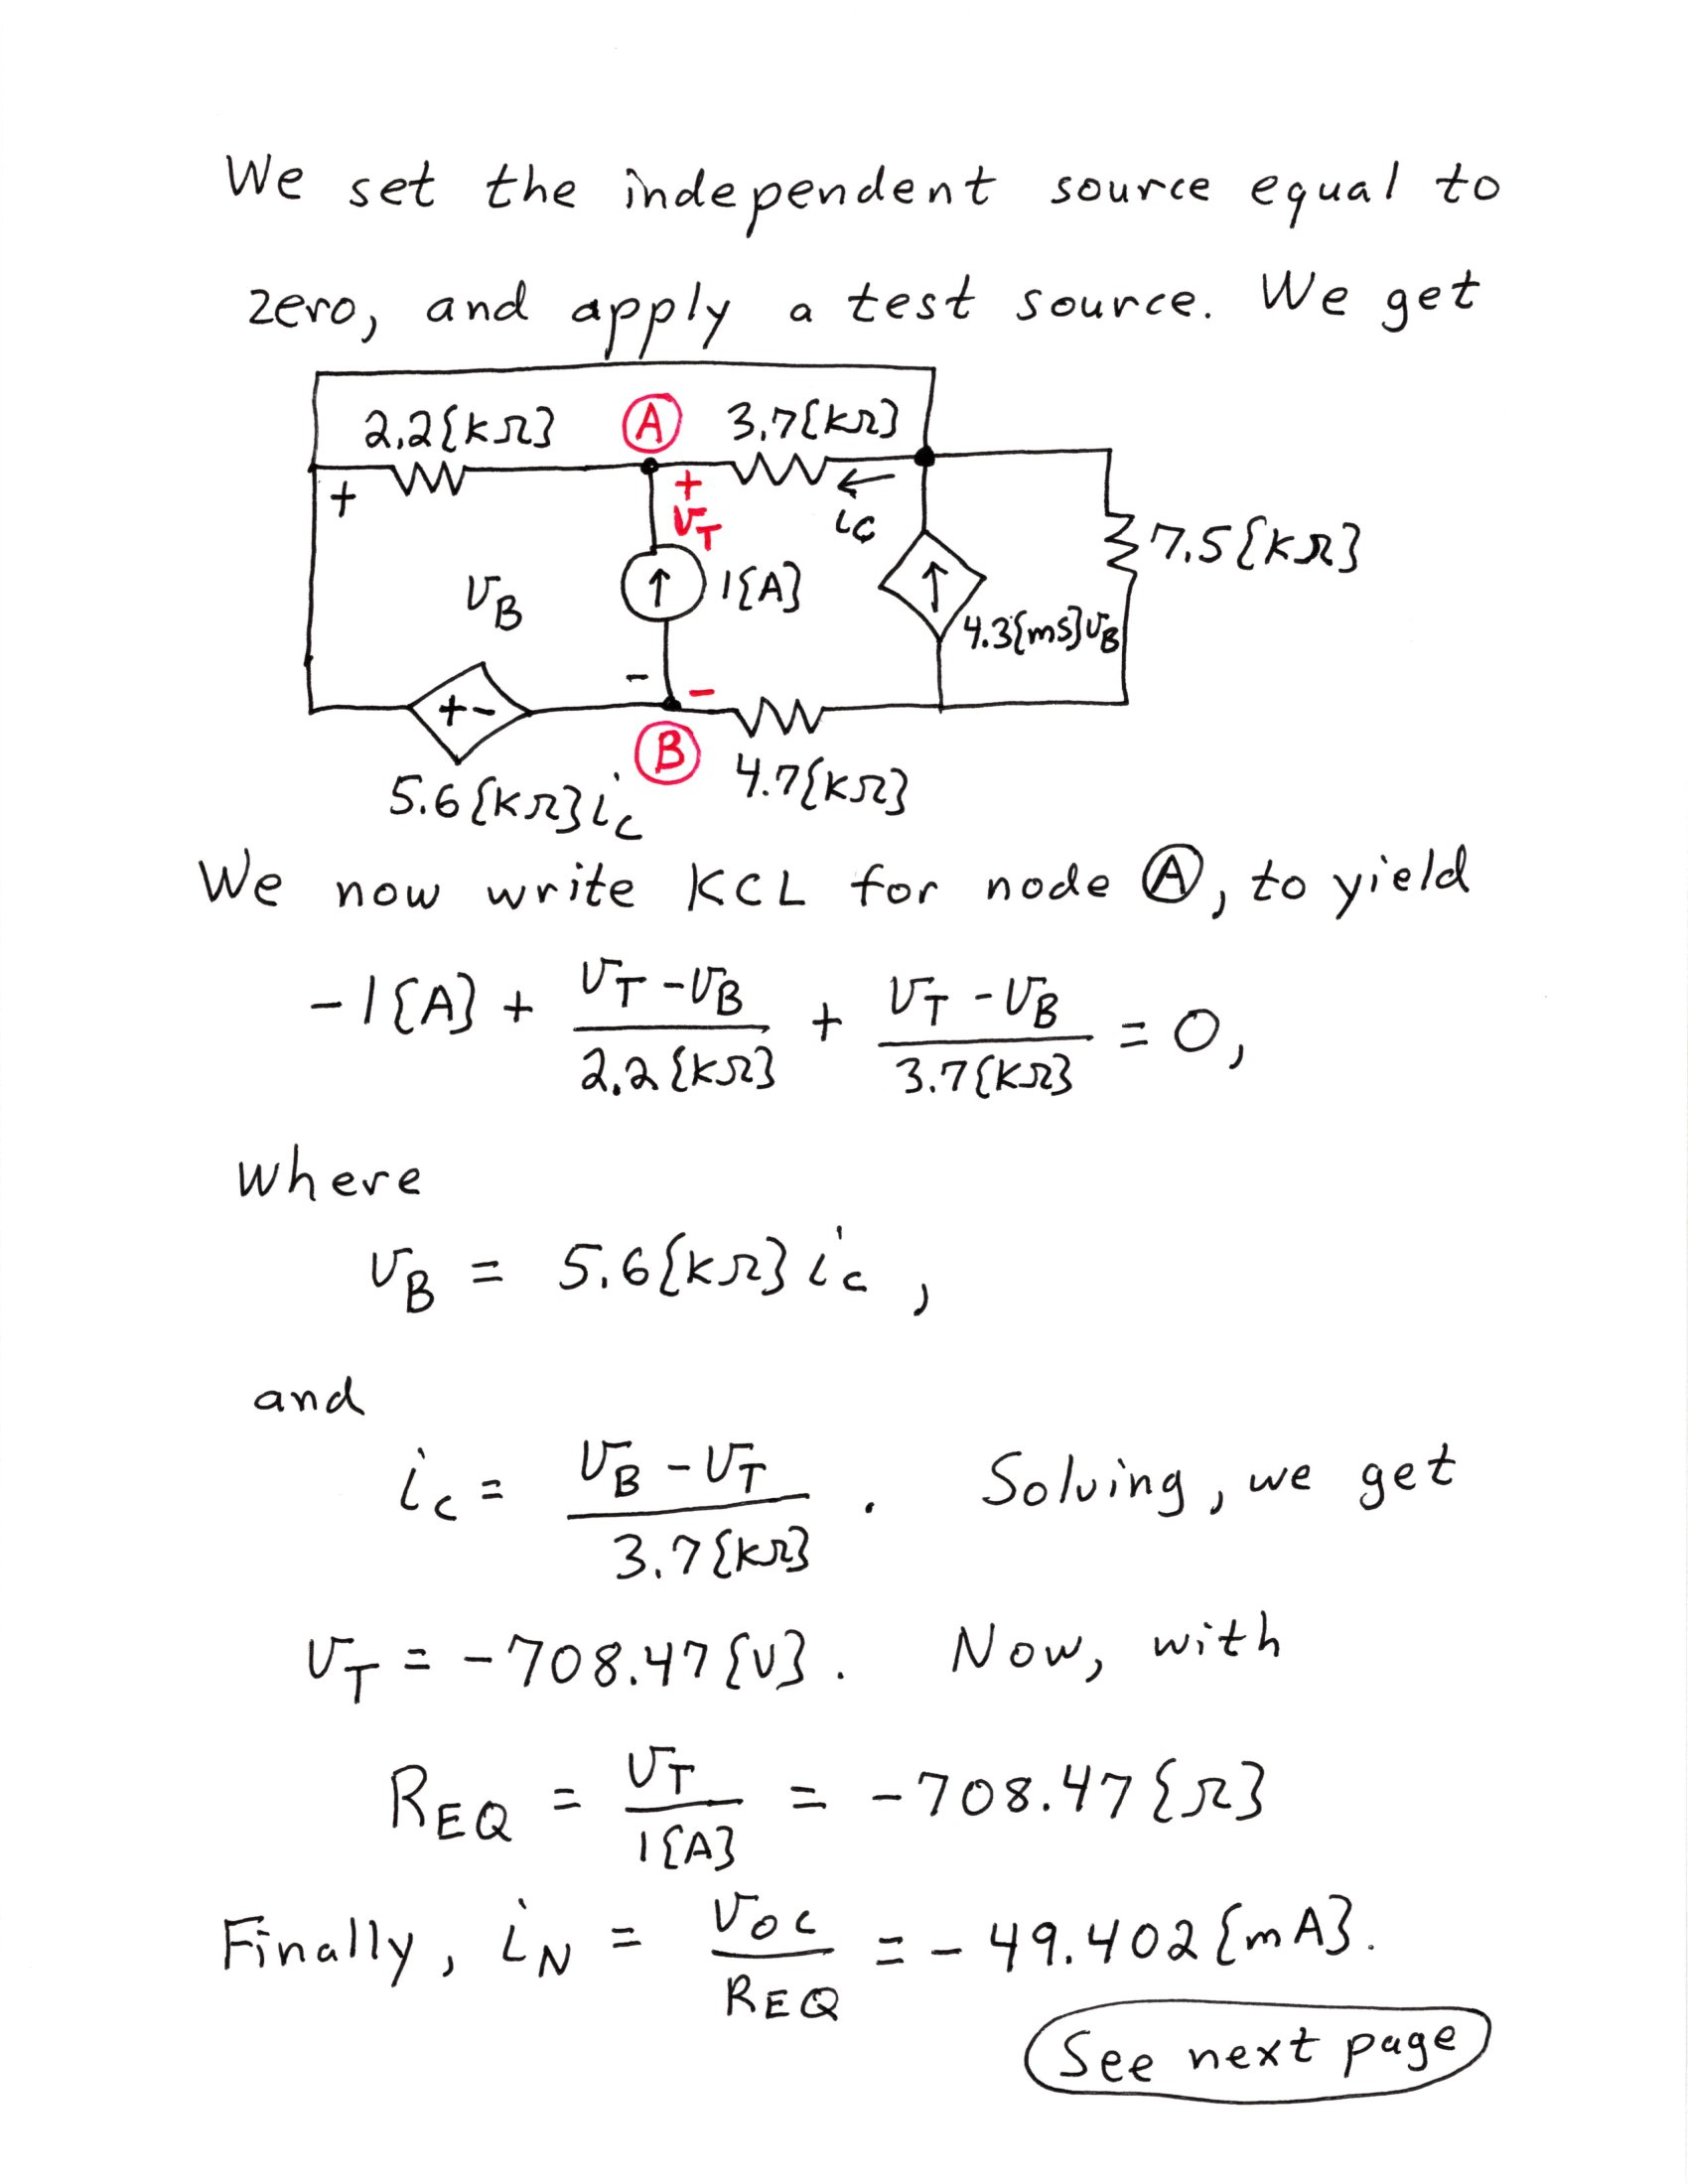 We set the independent source equal to
zero, and apply a test source. We get
2.2{kΩ} A 3.7{kΩ}
+ + v_T i_C 7.5{kΩ}
v_B 1{A} 4.3{mS}v_B
- -
+ -
B
5.6{kΩ}i_C 4.7{kΩ}
We now write KCL for node Ⓐ, to yield
-1{A} + (v_T - v_B)/(2.2{kΩ}) + (v_T - v_B)/(3.7{kΩ}) = 0,
where
v_B = 5.6{kΩ}i_C,
and
i_C = (v_B - v_T)/(3.7{kΩ}). Solving, we get
v_T = -708.47{V}. Now, with
R_EQ = v_T/1{A} = -708.47{Ω}
Finally, i_N = v_OC/R_EQ = -49.402{mA}.
See next page